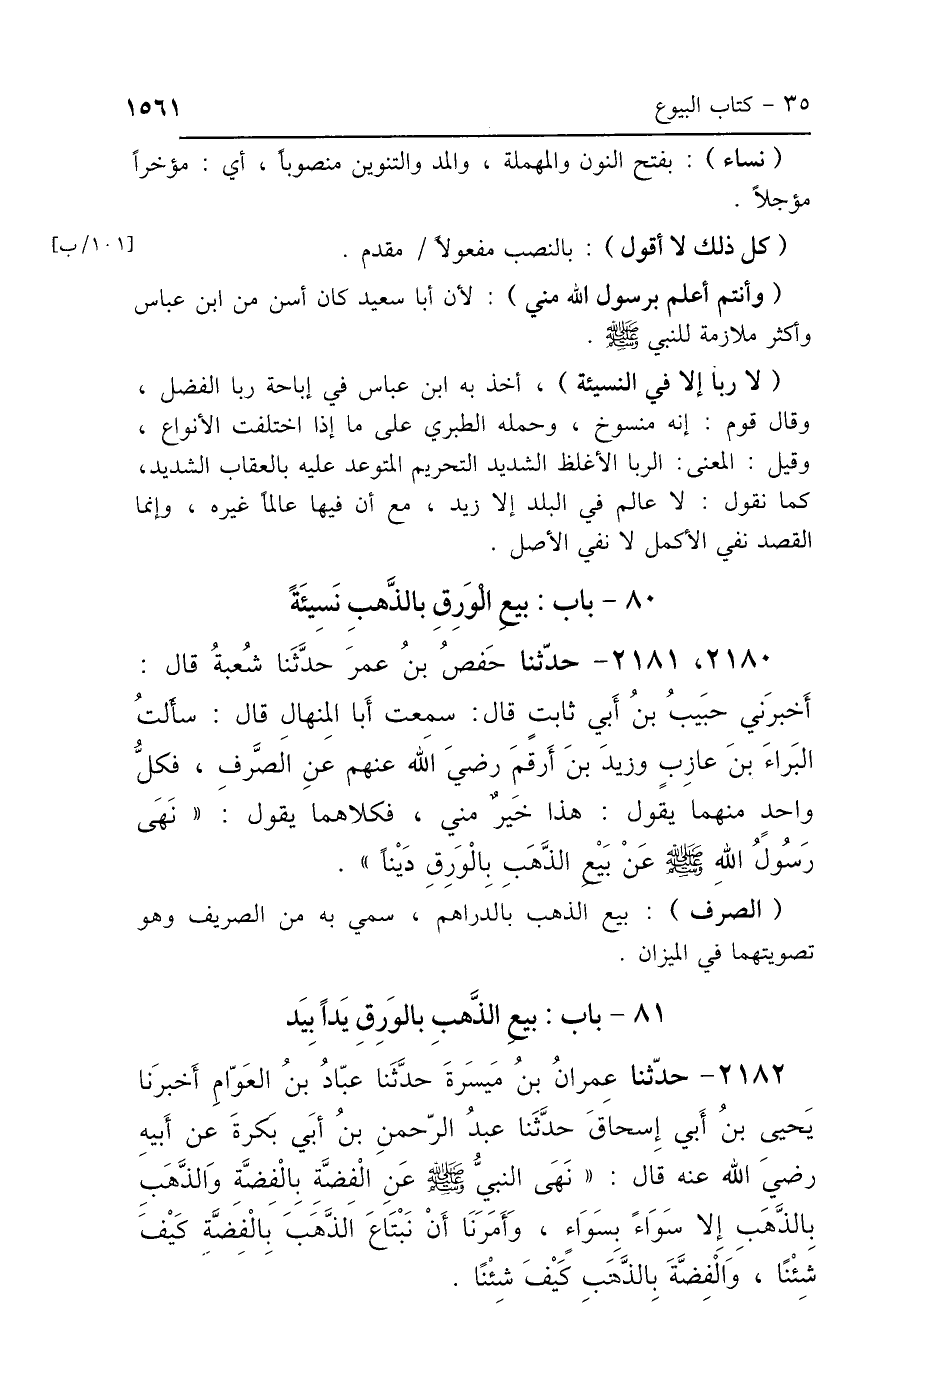 ٣٥ - كتاب البيوع ١٥٦١
( نساء ) : بفتح النون والمهملة ، والمد والتنوين منصوباً ، أي : مؤخراً
مؤجلاً .
( كل ذلك لا أقول ) : بالنصب مفعولاً / مقدم . [١٠١/ب]
( وأنتم أعلم برسول الله مني ) : لأن أبا سعيد كان أسن من ابن عباس
وأكثر ملازمة للنبي ﷺ .
( لا ربا إلا في النسيئة ) ، أخذ به ابن عباس في إباحة ربا الفضل ،
وقال قوم : إنه منسوخ ، وحمله الطبري على ما إذا اختلفت الأنواع ،
وقيل : المعنى: الربا الأغلظ الشديد التحريم المتوعد عليه بالعقاب الشديد،
كما نقول : لا عالم في البلد إلا زيد ، مع أن فيها عالماً غيره ، وإنما
القصد نفي الأكمل لا نفي الأصل .
٨٠ - باب : بيعِ الْوَرِقِ بالذَّهبِ نَسِيئَةً
٢١٨٠، ٢١٨١- حدّثنا حَفصُ بنُ عمرَ حدَّثَنا شُعبةُ قال :
أَخبرَني حبَيبُ بنُ أَبي ثابتٍ قال: سمِعت أَبا المنِهالِ قال : سأَلتُ
البَراءَ بنَ عازِبٍ وزيدَ بنَ أَرقمَ رضيَ الله عنهم عنِ الصَّرفِ ، فكلُّ
واحدٍ منهما يقول : هذا خَيرٌ مني ، فكلاهما يقول : « نَهَى
رَسُولُ اللهِ ﷺ عَنْ بَيْعِ الذَّهَبِ بِالْوَرِقِ دَيْناً » .
( الصرف ) : بيع الذهب بالدراهم ، سمي به من الصريف وهو
تصويتهما في الميزان .
٨١ - باب : بيعِ الذَّهبِ بالورِقِ يَداً بِيَد
٢١٨٢- حدّثنا عمِرانُ بنُ مَيسَرةَ حدَّثَنا عبّادُ بنُ العَوّامِ أَخبرَنا
يَحيى بنُ أَبي إسحاقَ حدَّثَنا عبدُ الرّحمنِ بنُ أبَي بَكرةَ عن أَبيهِ
رضيَ الله عنه قال : « نَهَى النبيُّ ﷺ عَنِ الْفِضَّةِ بِالْفِضَّةِ وَالذَّهَبِ
بالذَّهَبِ إلا سَوَاءً بِسَوَاءٍ ، وَأَمَرَنَا أَنْ نَبْتَاعَ الذَّهَبَ بِالْفِضَّةِ كَيْفَ
شِئْنَا ، وَالْفِضَّةَ بِالذَّهَبِ كَيْفَ شِئْنَا .